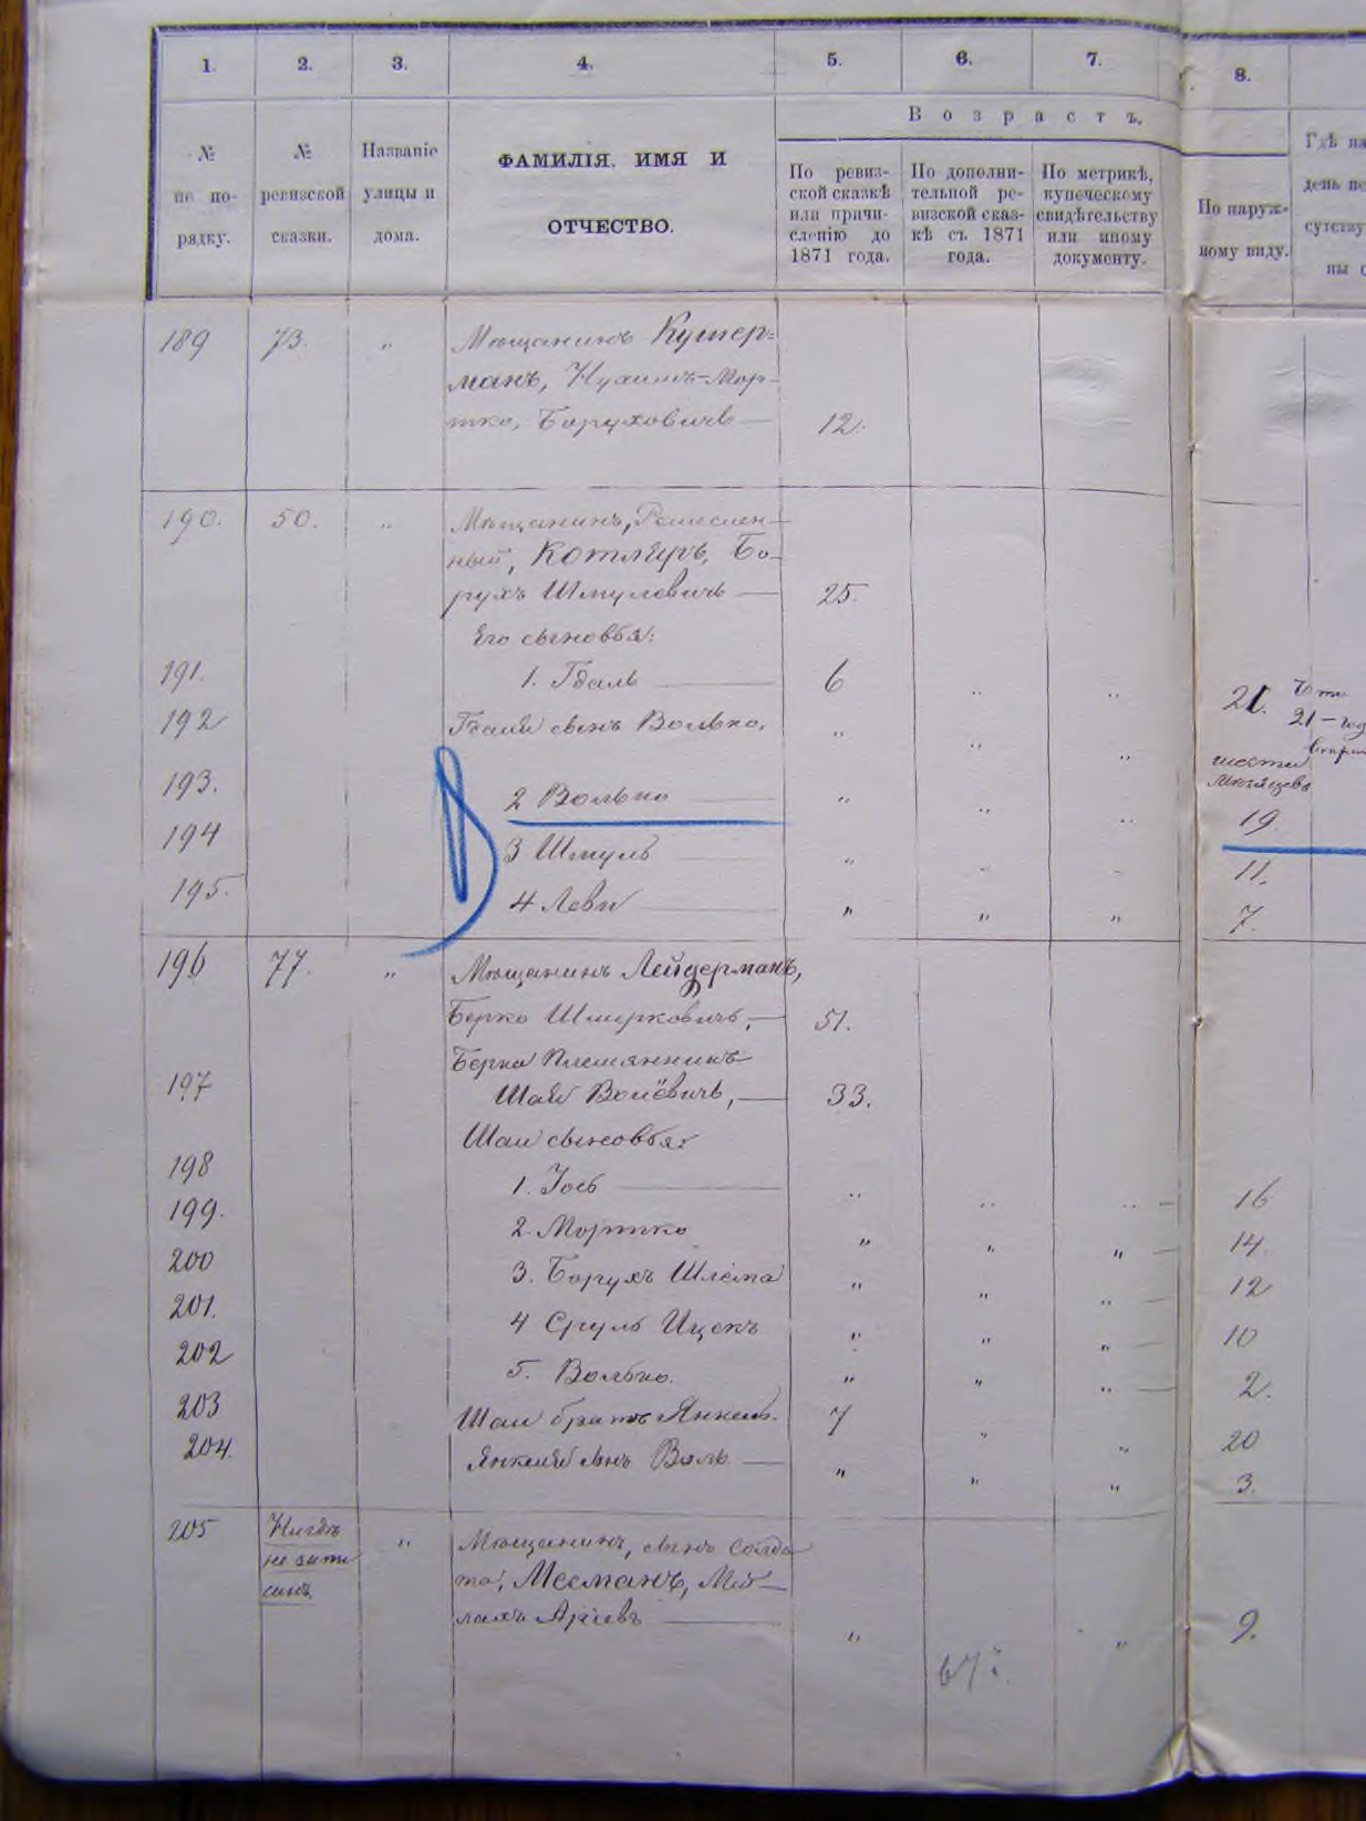 1. 2. 3. 4. 5. 6. 7. 8.
Возрастъ.
№ по по-рядку.
№ ревизской сказки.
Названіе улицы и дома.
ФАМИЛІЯ. ИМЯ И
ОТЧЕСТВО.
По ревиз-
ской сказкѣ
или причи-
сленію до
1871 года.
По дополни-
тельной ре-
визской сказ-
кѣ съ 1871
года.
По метрикѣ,
купеческому
свидѣтельству
или иному
документу.
По наруж-
ному виду.
Гдѣ на
день пе
сутству
ны с
189 73. " Мѣщанинъ Кушер=
манъ, Нухимъ-Мор-
тко, Боруховичъ — 12.
190. 50. " Мѣщанинъ, Ремеслен-
ный, Котляръ, Бо-
рухъ Шмулевичъ — 25.
Его сыновья:
191. 1. Гдаль — 6 " " 21.
21-год
192 Гдаля сынъ Волько. " " " шести
мѣсяцевъ
193. 2 Волько — " " " 19.
194 3 Шмуль — " " " 11.
195. 4 Леви — " " " 7.
196 77. " Мѣщанинъ Лейдерманъ,
Берко Шмерковичъ, — 51.
Берка племянникъ
197 Шая Волёвичъ, — 33.
Шаи сыновья:
198 1. Іось — " " " — 16
199. 2. Мортко " " " — 14.
200 3. Борухъ Шлема " " " — 12
201. 4 Сруль Ицекъ " " " — 10
202 5. Волько. " " " — 2.
203 Шаи братъ Янкель. 7 " " 20
204. Янкеля сынъ Воль. — " " " 3.
205 Нигдѣ " Мѣщанинъ, сынъ солда
не запи та, Месманъ, Мей-
санъ. лахъ Аріевъ — " " 9.
67